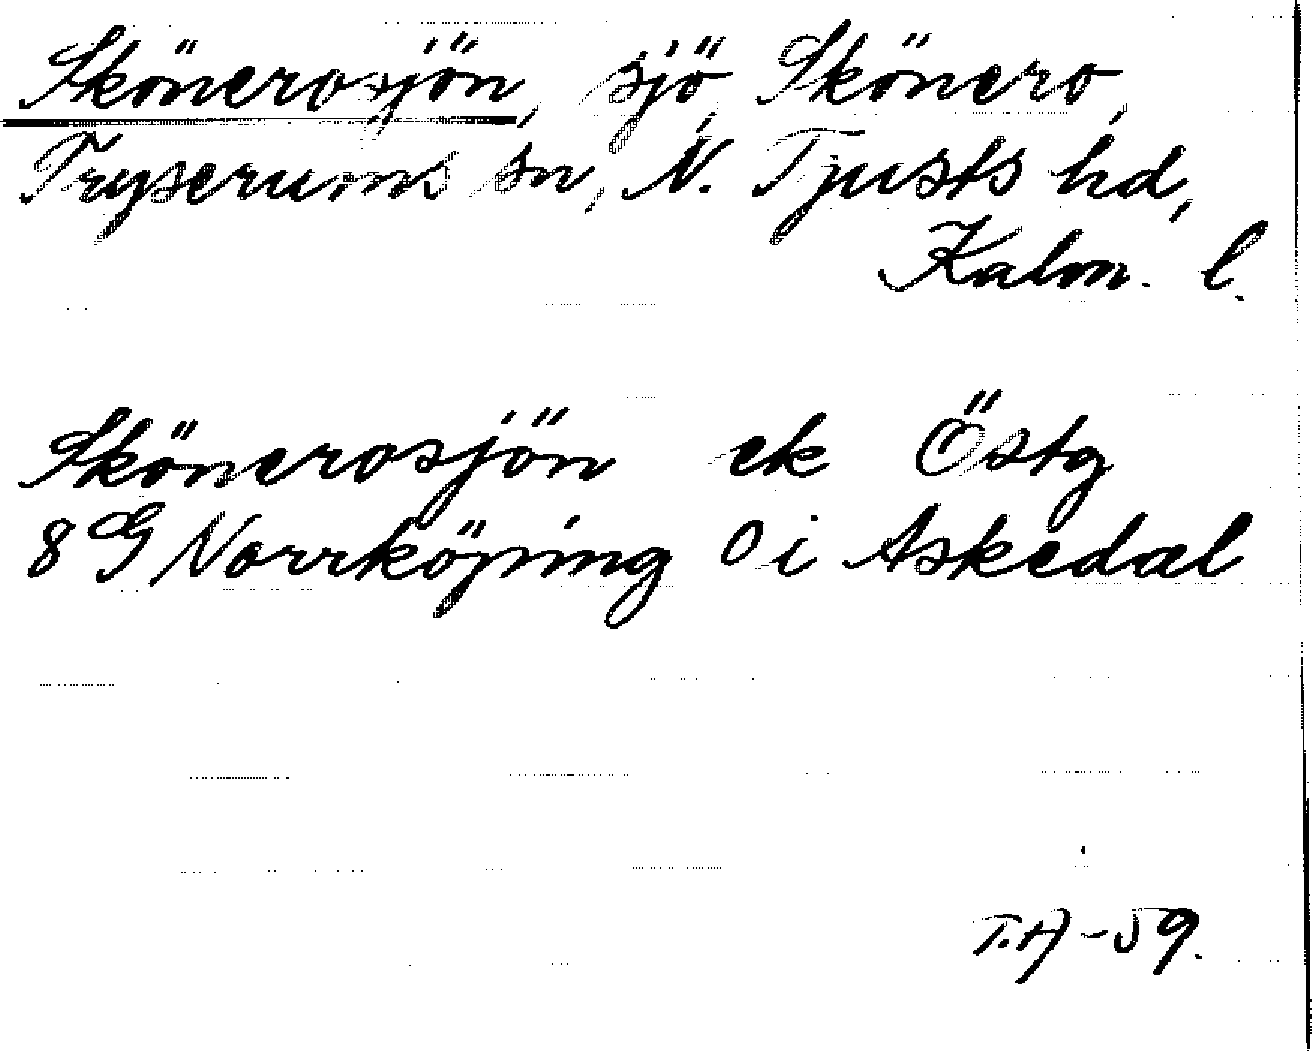 Skönerosjön, sjö, Skönero,
Tryserums sn, N. Tjusts hd,
Kalm. l.
Skönerosjön ek Östg
8 G Norrköping O i Askedal
T.A-59.